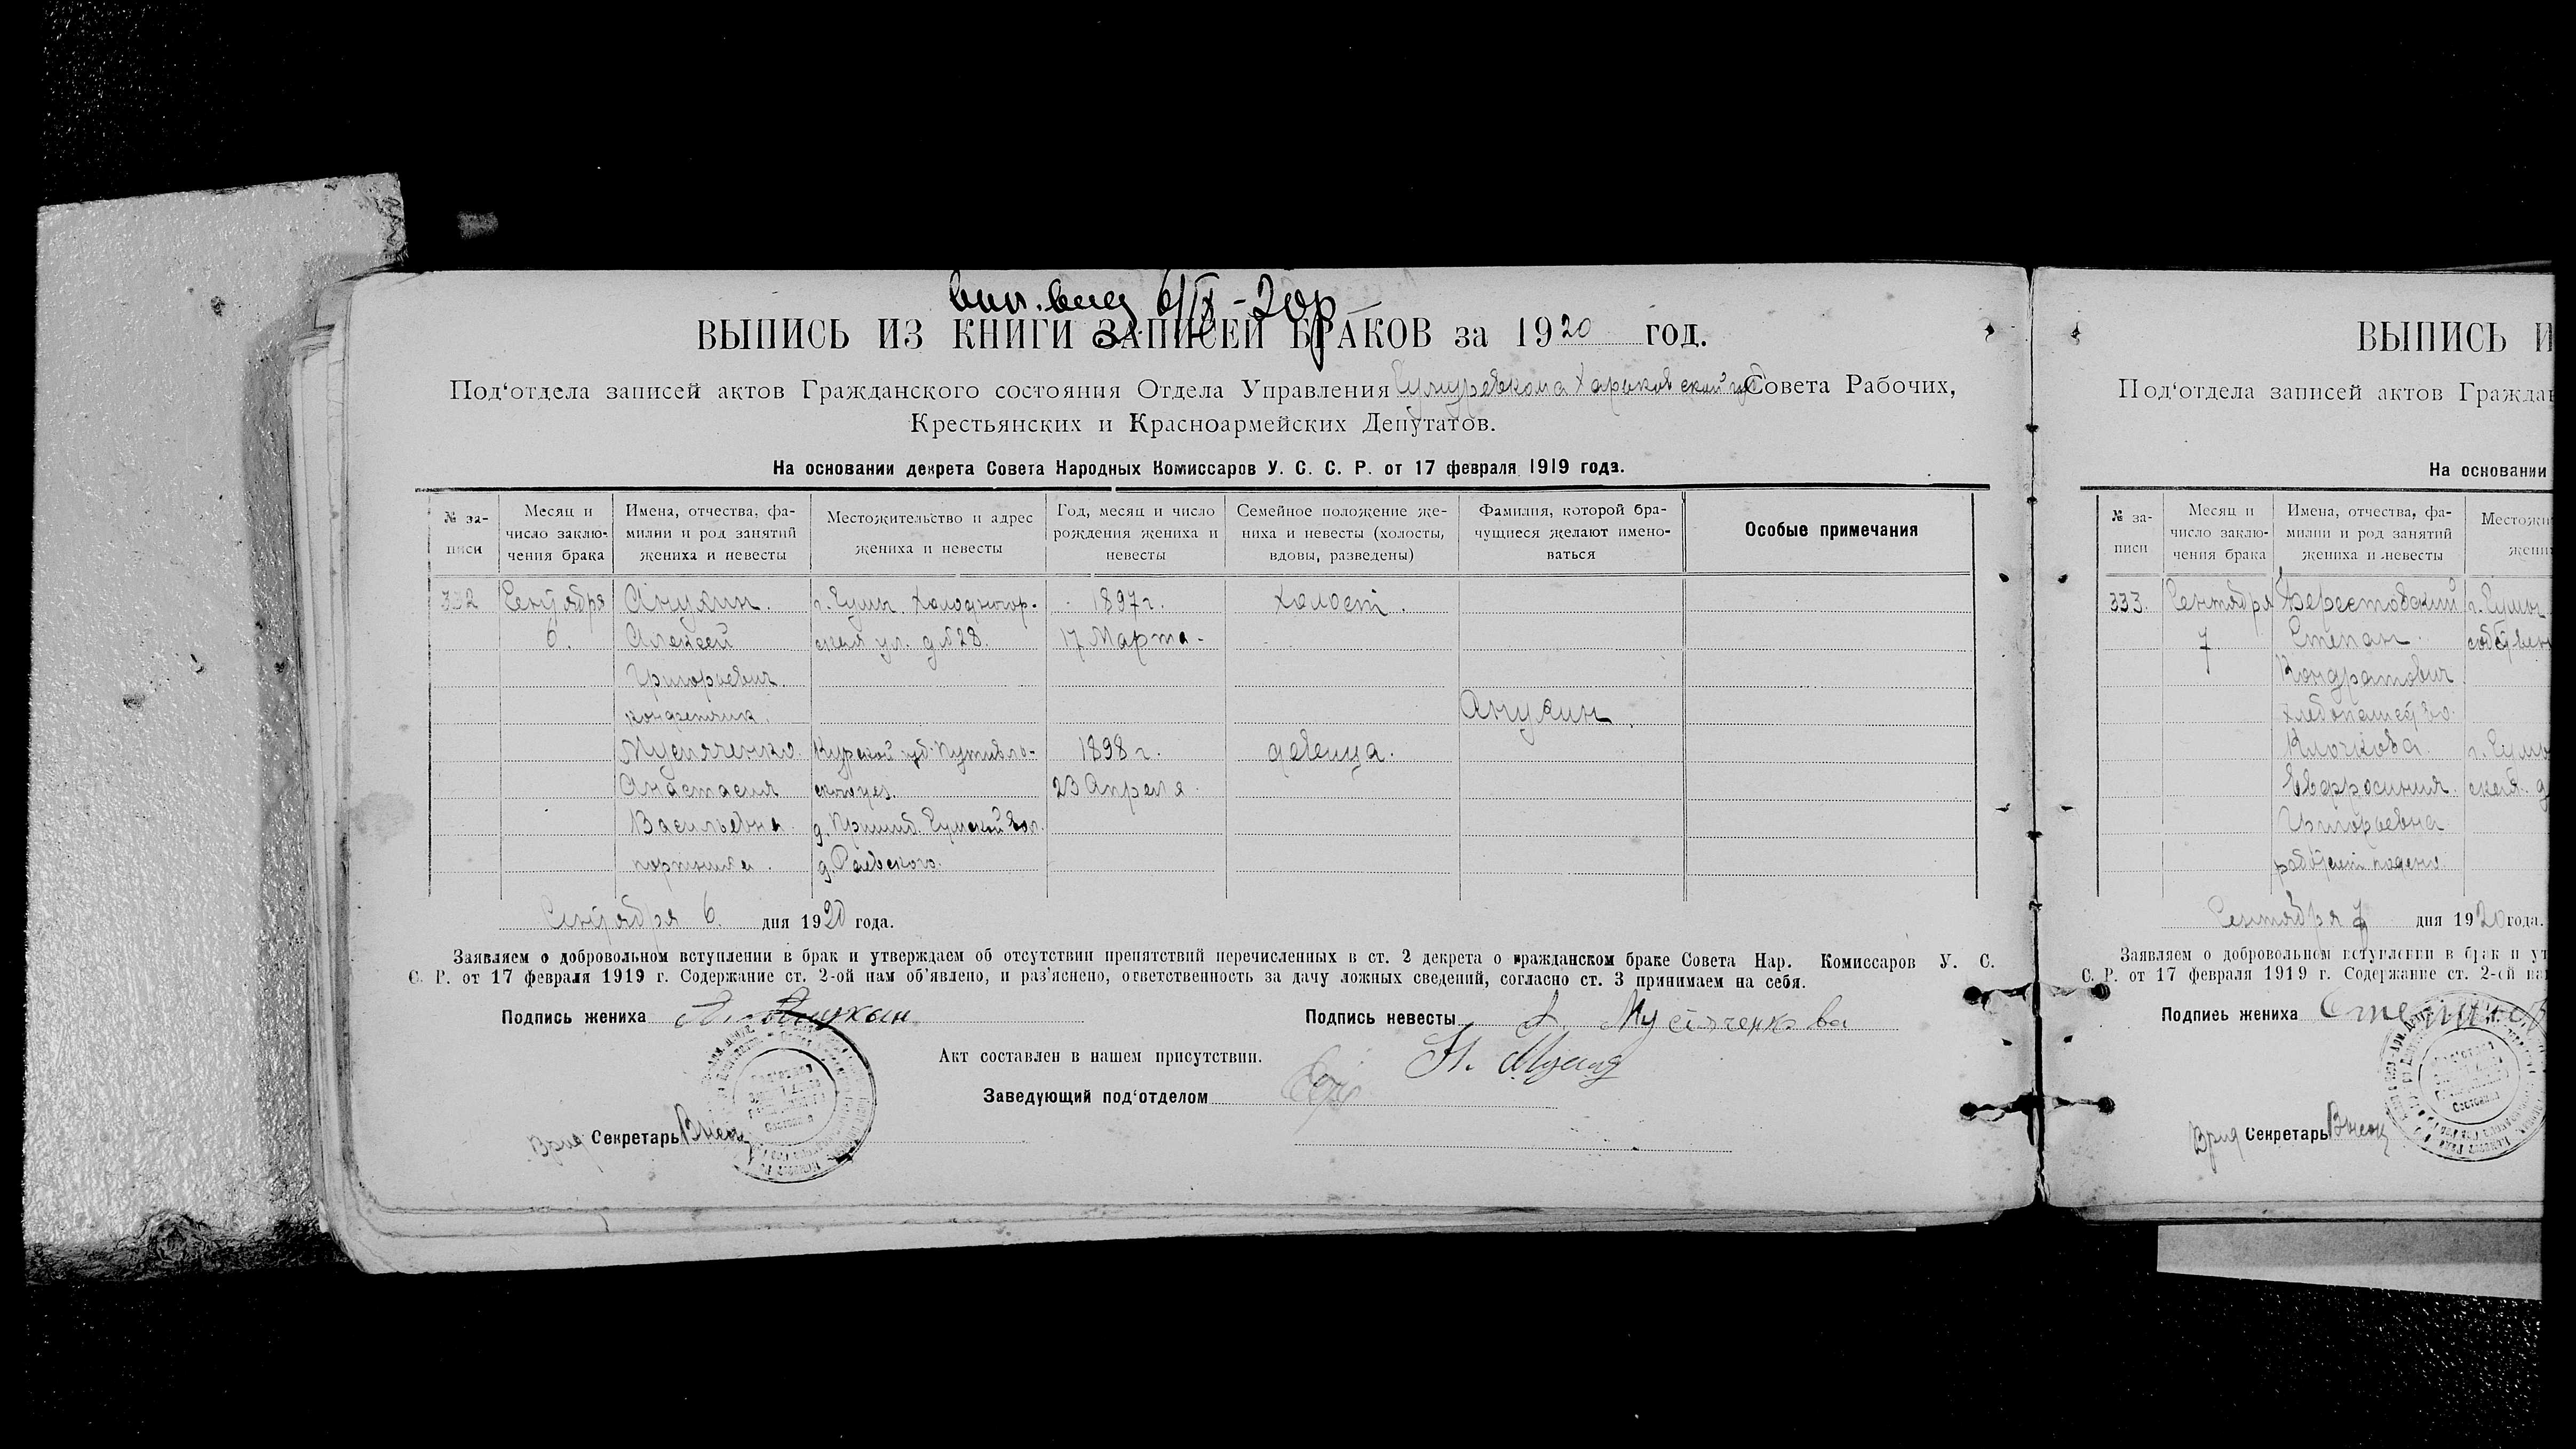 вып. выд 6/IX-20р
ВЫПИСЬ ИЗ КНИГИ ЗАПИСЕЙ БРАКОВ за 1920 год.
Под‘отдела записей актов Гражданского состояния Отдела Управления Сумуревкома Харьковской губ Совета Рабочих,
Крестьянских и Красноармейских Депутатов.
На основании декрета Совета Народных Комиссаров У. С. С. Р. от 17 февраля 1919 года.
№ за-
писи
Месяц и
число заклю-
чения брака
Имена, отчества, фа-
милии и род занятий
жениха и невесты
Местожительство и адрес
жениха и невесты
Год, месяц и число
рождения жениха и
невесты
Семейное положение же-
ниха и невесты (холосты,
вдовы, разведены)
Фамилия, которой бра-
чущиеся желают имено-
ваться
Особые примечания
332 Сентября Анухин. г. Сумы Холодногор- 1897 г. холост.
6. Алексей ская ул. д №28. 17 Марта.
Григорьевич.
Анухин.
Мусияченко Курской губ. Путивль- 1898 г. девица.
Анастасия ского уез. 23 Апреля
Васильевна. д. Сумской вол.
портниха. д. Раевского.
Сентября 6. дня 1920 года.
Заявляем о добровольном вступлении в брак и утверждаем об отсутствии препятствий перечисленных в ст. 2 декрета о гражданском браке Совета Нар. Комиссаров У. С.
С. Р. от 17 февраля 1919 г. Содержание ст. 2-ой нам об’явлено, и раз’яснено, ответственность за дачу ложных сведений, согласно ст. 3 принимаем на себя.
Подпись жениха
Подпись невесты А. Мусіяченкова
Акт составлен в нашем присутствии.
Заведующий под‘отделом
Врид Секретарь
ВЫПИСЬ И
Под‘отдела записей актов Граждан
На основании
№ за-
писи
Месяц и
число заклю-
чения брака
Имена, отчества, фа-
милии и род занятий
жениха и невесты
Местожи
жени
333. Сентября Берестовский г. Сумы
7 Степан собствен
Кондратович
хлебопашество.
Клочкова. г. Сумы
Евфросиния.
Григорьевна
работает поденно
Сентября 7 дня 1920 года.
Заявляем о добровольном вступлении в брак и ут
С. Р. от 17 февраля 1919 г. Содержание ст. 2-ой на
Подпись жениха Степан
Врид Секретарь